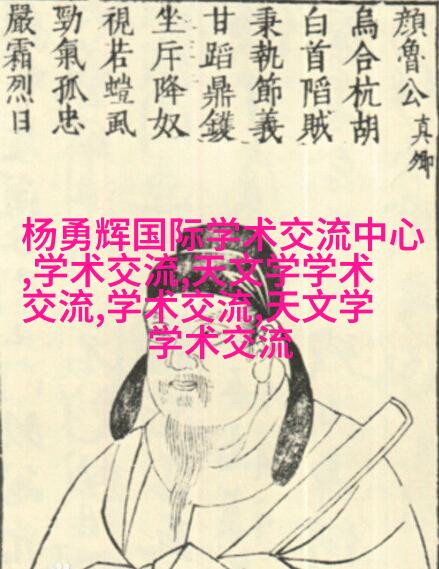 顔魯公真卿
烏合杭胡
白首䧟賊
秉執節義
甘蹈鼎鑊
坐斥降奴
視若螘虱
勁氣孤忠
嚴霜烈日
杨勇辉国际学术交流中心
,学术交流,天文学学术
交流,学术交流,天文学
学术交流